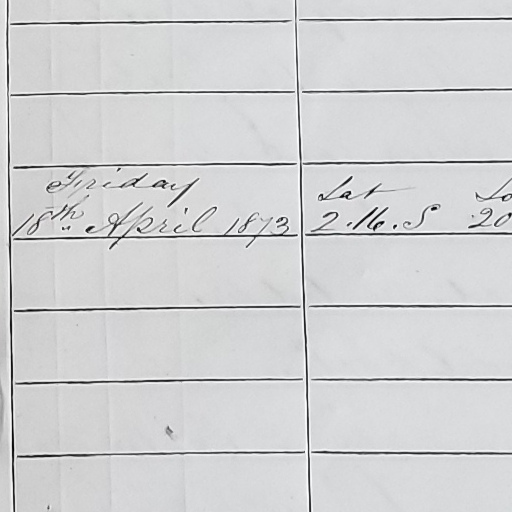 Friday
18th April 1873
Lat
2.16.S
Lo
20